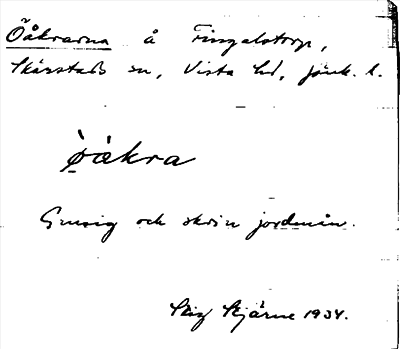 Öåkrarna å Fingalstorp,
Skärstads sn, Vista hd, jönk. l.
ö̀åkra
Grusig och skrin jordmån.
Stig Stjärne 1934.